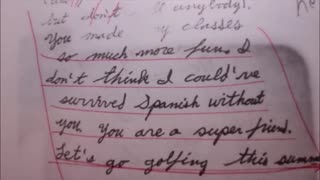 but don't anybody).
You made my classes
so much more fun. I
don't think I could've
survived Spanish without
you. You are a super friend.
Let's go golfing this